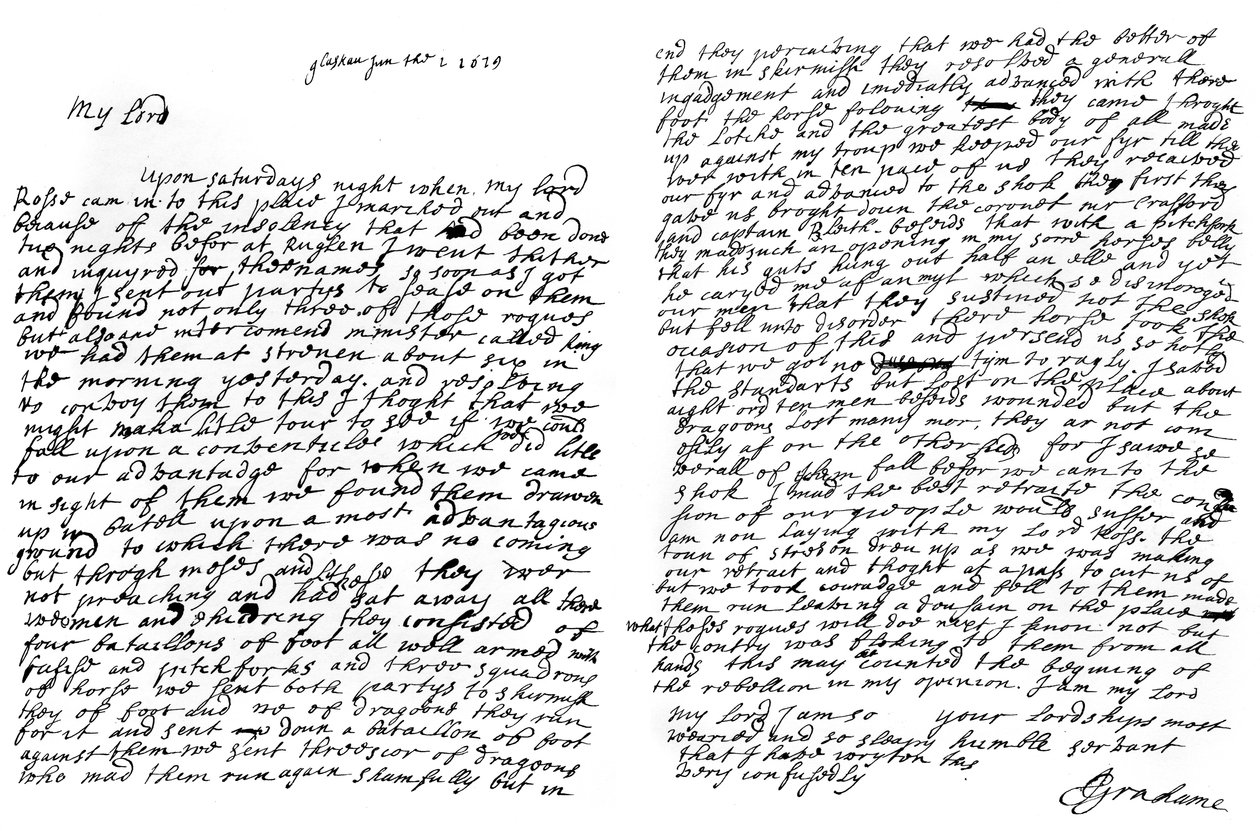 glaskau Jun the 1 1679
My Lord
Upon saturdays night when my Lord
Rosse cam in to this place I marched out and
because of the insolency that had been done
tue nights befor at Ruglen I went thither
and inquyred for thee names so soon as I got
them I sent out partys to sease on them
and found not only three of those rogues
but also ane intercomend minister called king
we had them at streven about six in
the morning yesterday and resolving
to convoy them to this I thoght that we
might make a litle tour to see if we could
fall upon a conventicle which we did litle
to our advantadge for when we came
in sight of them we found them drauen
up in batell upon a most advantagious
ground to which there was no coming
but throgh moses and lakes they wer
not preaching and had gat away all there
weomen and shildring they consisted of
four bataillons of foot all well armed with
fusils and pitch forks and three squadrons
of horse we sent both partys to skirmish
they of foot and we of dragoons they run
for it and sent doun a bataillon of foot
against them we sent threescor of dragoons
who mad them run again shamfully but in
end they percaiving that we had the better of
them in skirmish they resolved a generall
ingadgement and imediatly advanced with there
foot the horse folouing they came throght
the lotche and the greatest body of all made
up against my troup we keeped our fyr till they
wer with in ten pace of us they recaived
our fyr and advanced to the shok they first they
gave us broght doun the coronet mr Crafford
and captain Blith besids that with a pitchfork
they mad such an opening in my sore horses belly
that his guts hung out half an elle and yet
he caryed me af an myl which so discoroged
our men that they sustined not the shok
but fell unto disorder there horse took the
occasion of this and persend us so hotly
that we got no tym to ragly I saved
the standarts but lost on the place about
aight ord ten men besids wounded but the
dragoons lost many mor they ar not com
esily af on the other side for I sawe se
verall of them fall befor we cam to the
shok I mad the best retraite the confu
sion of our people would suffer and
am nou laying with my Lord Rosse the
toun of streven dreu up as we was making
our retrait and thoght at a pass to cut us of
but we took couradge and fell to them made
them run leaving a dousain on the place
what theses rogues will doe next I know not but
the contry was floking to them from all
hands this may be counted the begining of
the rebellion in my opinion I am my Lord
your lordships most
humble servant
My Lord I am so
wearied and so sleapy
that I have wryton this
very confusedly
JGrahame